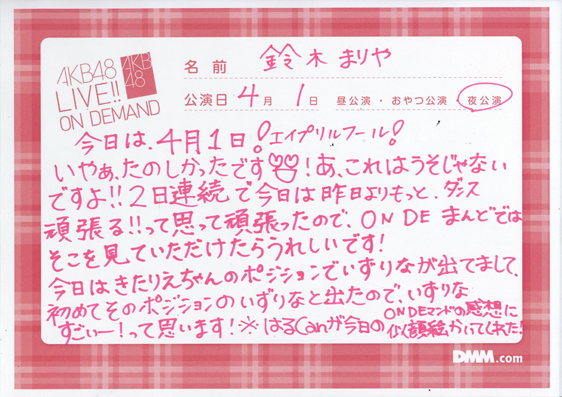 AKB48
LIVE!!
ON DEMAND
AKB
48
名前 鈴木まりや
公演日 4月 1日 昼公演・おやつ公演・夜公演
今日は、4月1日!エイプリルフール!
いやぁ、たのしかったです!あ、これはうそじゃない
ですよ!!2日連続で今日は昨日よりもっと、ダンス
頑張る!!って思って頑張ったので、ON DEまんどでは
そこを見ていただけたらうれしいです!
今日はきたりえちゃんのポジションでいずりなが出てまして、
初めてそのポジションのいずりなと出たので、いずりな
すごいー!って思います!※はるCanが今日の
ONDEマンドの感想に
似顔絵かいてくれた!
DMM.com